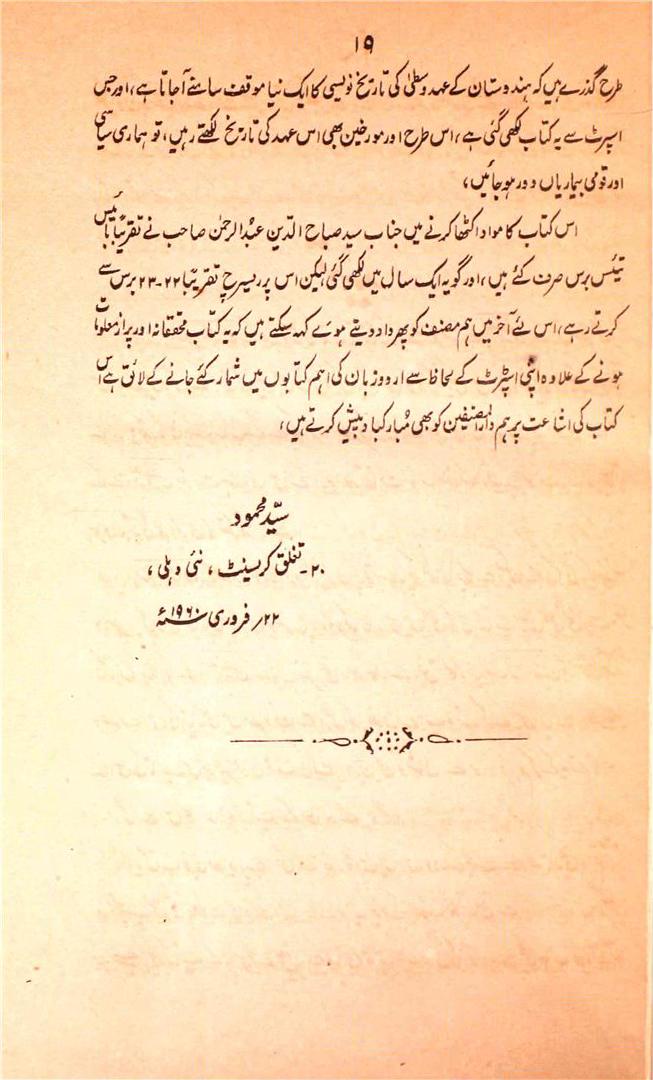 ۱۹
طرح گذرے ہیں کہ ہندوستان کے عہد وسطیٰ کی تاریخ نویسی کا ایک نیا موقف سامنے آجاتا ہے، اور جس
اسپرٹ سے یہ کتاب لکھی گئی ہے، اس طرح اور مورخین بھی اس عہد کی تاریخ لکھتے رہیں، تو ہماری سیاسی
اور قومی بیماریاں دور ہوجائیں،
اس کتاب کا مواد اکٹھا کرنے میں جناب سید صباح الدّین عبدُالرحمٰن صاحب نے تقریبًا بائیس
تیئس برس صرف کئے ہیں، اور گو یہ ایک سال میں لکھی گئی لیکن اس پر ریسرچ تقریبًا ۲۲-۲۳ برس سے
کرتے رہے، اس لئے آخر میں ہم مصنف کو پھر داد دیتے ہوئے کہہ سکتے ہیں کہ یہ کتاب محققانہ اور پراز معلومات
ہونے کے علاوہ اپنی اسپرٹ کے لحاظ سے اردو زبان کی اہم کتابوں میں شمار کئے جانے کے لائق ہے اس
کتاب کی اشاعت پر ہم دارالمصنفین کو بھی مُبارکباد پیش کرتے ہیں،
سیّد محمود
۲۰۔ تغلق کریسنٹ، نئی دہلی،
۲۲؍ فروری ۱۹۶۰ء